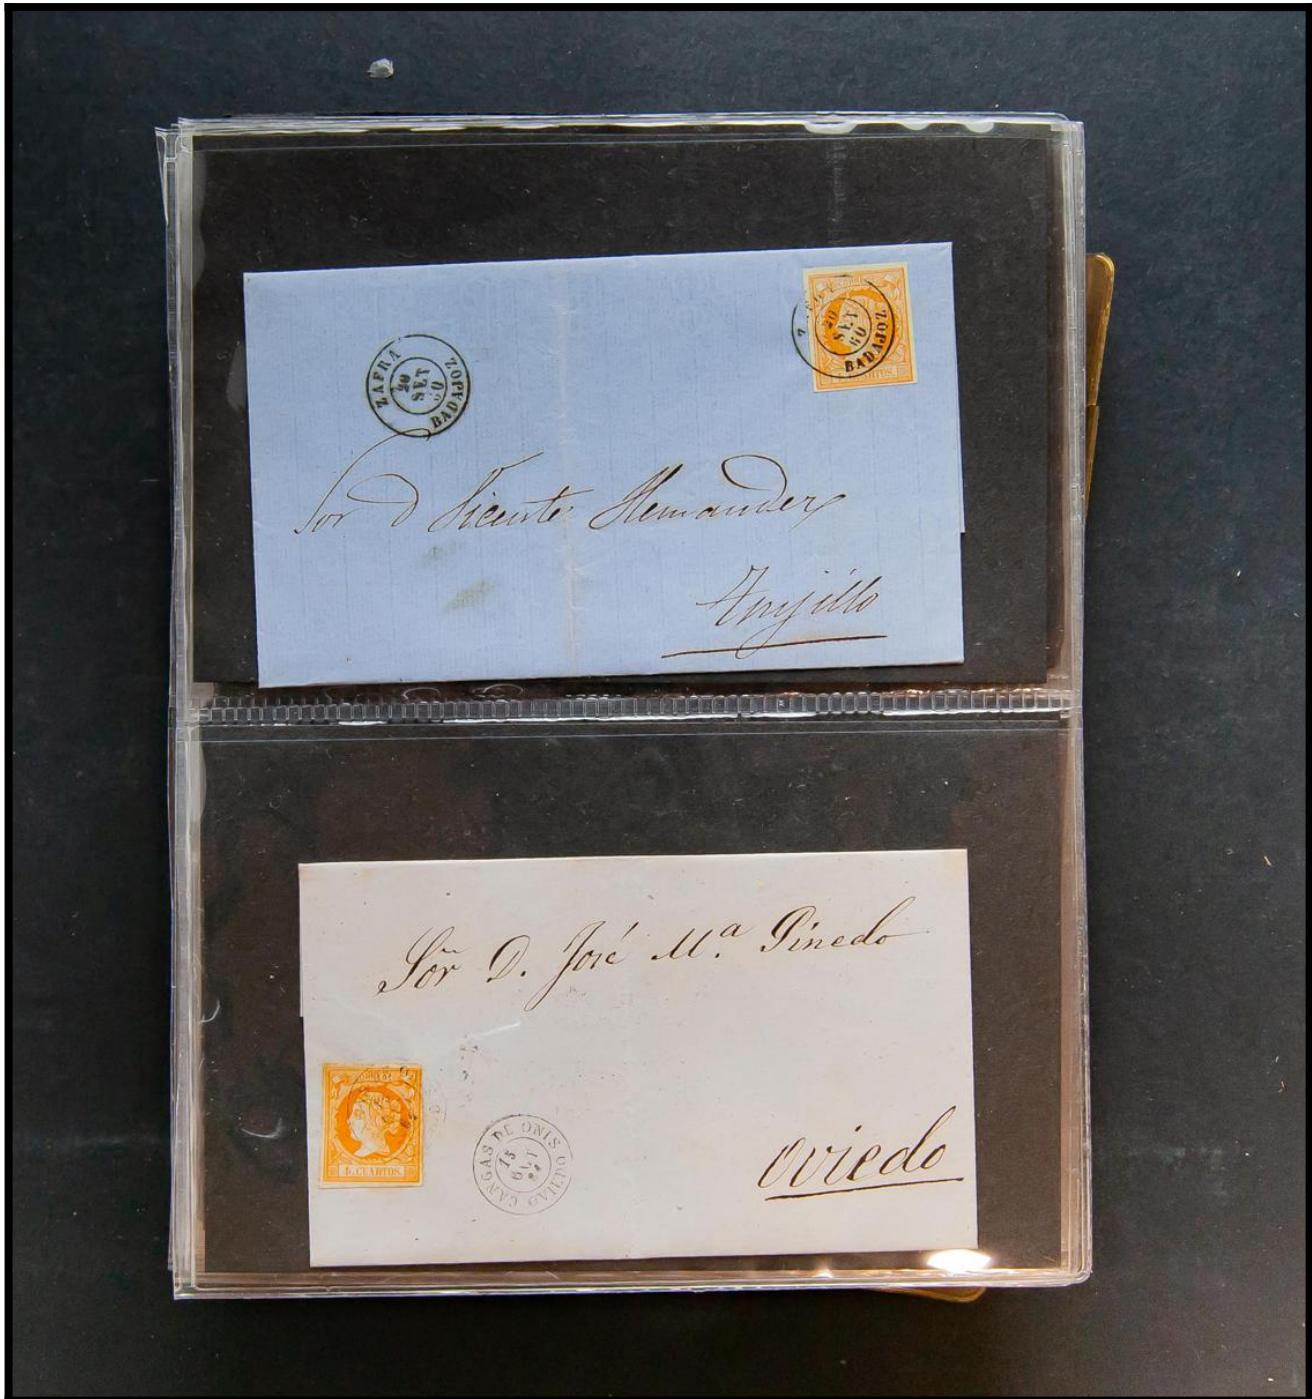 ZAFRA
20
SET
BADAJOZ
20
SET
60
BADAJOZ
CUARTOS.
Sor D Vicente Hernandez
Trujillo
Sor D. José Mª. Pinedo
4 CUARTOS.
CANGAS DE ONIS
15
Oviedo